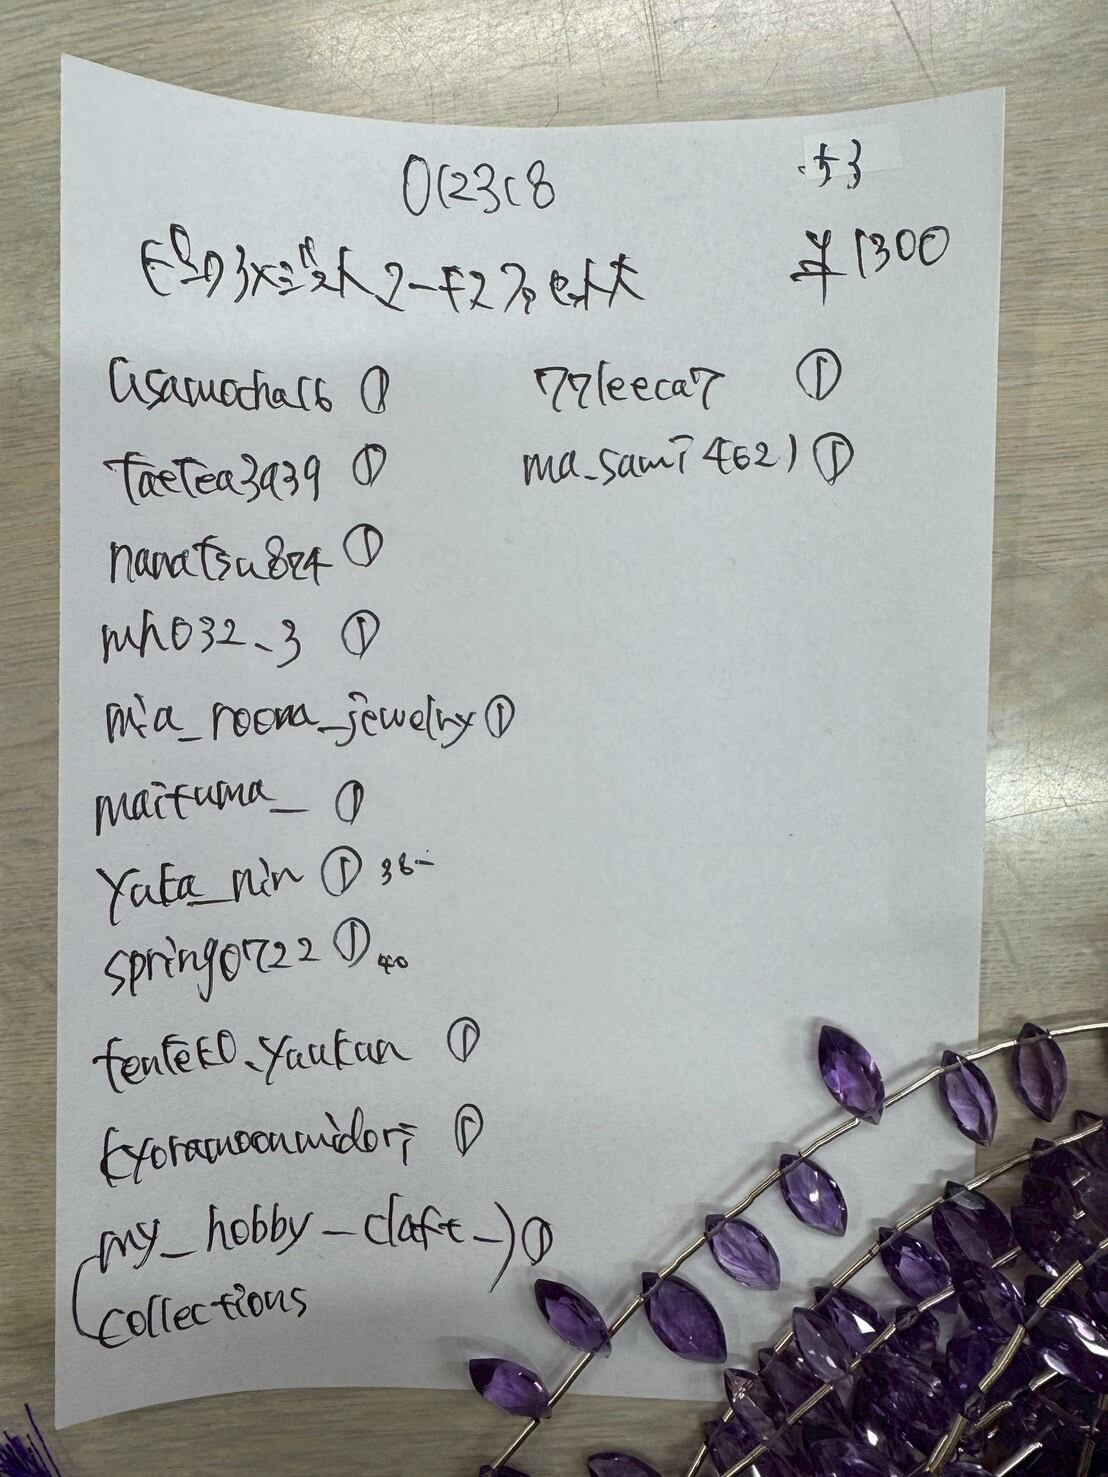 012318
ち3
¥1300
マーキスファセット
asamocha16 ①
taetea3939 ①
nanatsu874 ①
mh032_3 ①
mia_rooma_jewelry ①
maituma_ ①
yuka_nin ① 36-
spring0722 ① 40
tenteko.yaukan ①
kyoramoonmidori ①
my_hobby_claft_ ①
collections
77leeca7 ①
ma_sami4621 ①